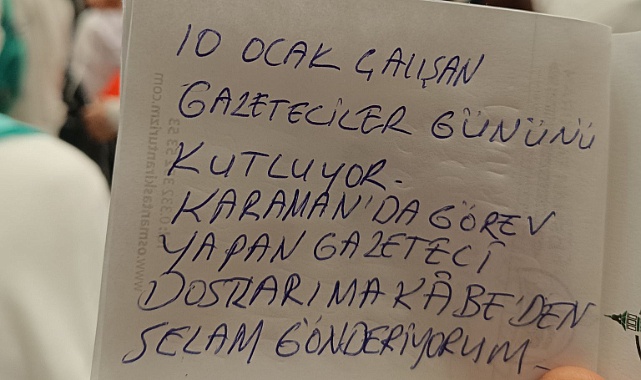 10 OCAK ÇALIŞAN
GAZETECİLER GÜNÜNÜ
KUTLUYOR.
KARAMAN'DA GÖREV
YAPAN GAZETECİ
DOSTLARIMA KÂBE'DEN
SELAM GÖNDERİYORUM.
www.osmantaskiranturizm.com